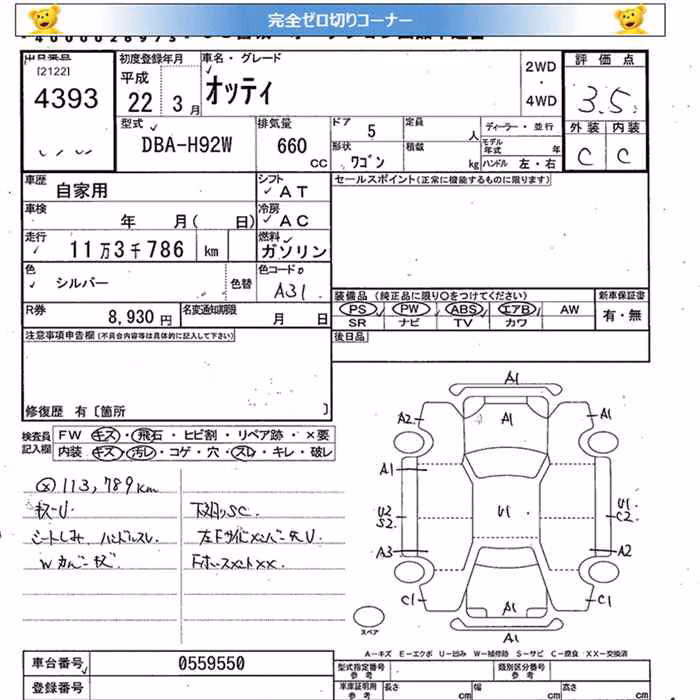 完全ゼロ切りコーナー
出品番号
[2122]
4393
初度登録年月
平成
22 3 月
車名・グレード
オッティ
2WD
・
4WD
評価点
3.5
外装 内装
C C
型式
DBA-H92W
排気量
660
CC
ドア 5
定員 人
形状 ワゴン
積載 kg
ディーラー・並行
モデル年式 年
ハンドル 左・右
車歴
自家用
シフト
AT
車検
年 月( 日)
冷房
AC
走行
11万3千786 km
燃料
ガソリン
色
シルバー
色替
色コード
A31
R券
8,930 円
名変通知期限
月 日
セールスポイント(正常に機能するものに限ります)
装備品 (純正品に限り○をつけてください)
PS PW ABS エアB AW
SR ナビ TV カワ
新車保証書
有・無
後日品
注意事項申告欄(不具合内容等は具体的に記入して下さい)
修復歴 有〔箇所 〕
検査員記入欄
FW キズ・飛石・ヒビ割・リペア跡・×要
内装 キズ・汚レ・コゲ・穴・スレ・キレ・破レ
113,789km
キズ・U
シートしみ、ハンドルスレ
Wカバーキズ
下廻りSC.
左FサイドメンバーズレU
Fホースメント××.
A1
A2
A1
A1
A1
U2
S2
U1
U1
C2
A3
A2
C1
A1
C1
A1
スペア
A-キズ E-エクボ U-凹み W-補修跡 S-サビ C-腐食 XX-交換済
車台番号
0559550
登録番号
型式指定番号
参考
類別区分番号
参考
車庫証明用
参考
長さ cm
幅 cm
高さ cm